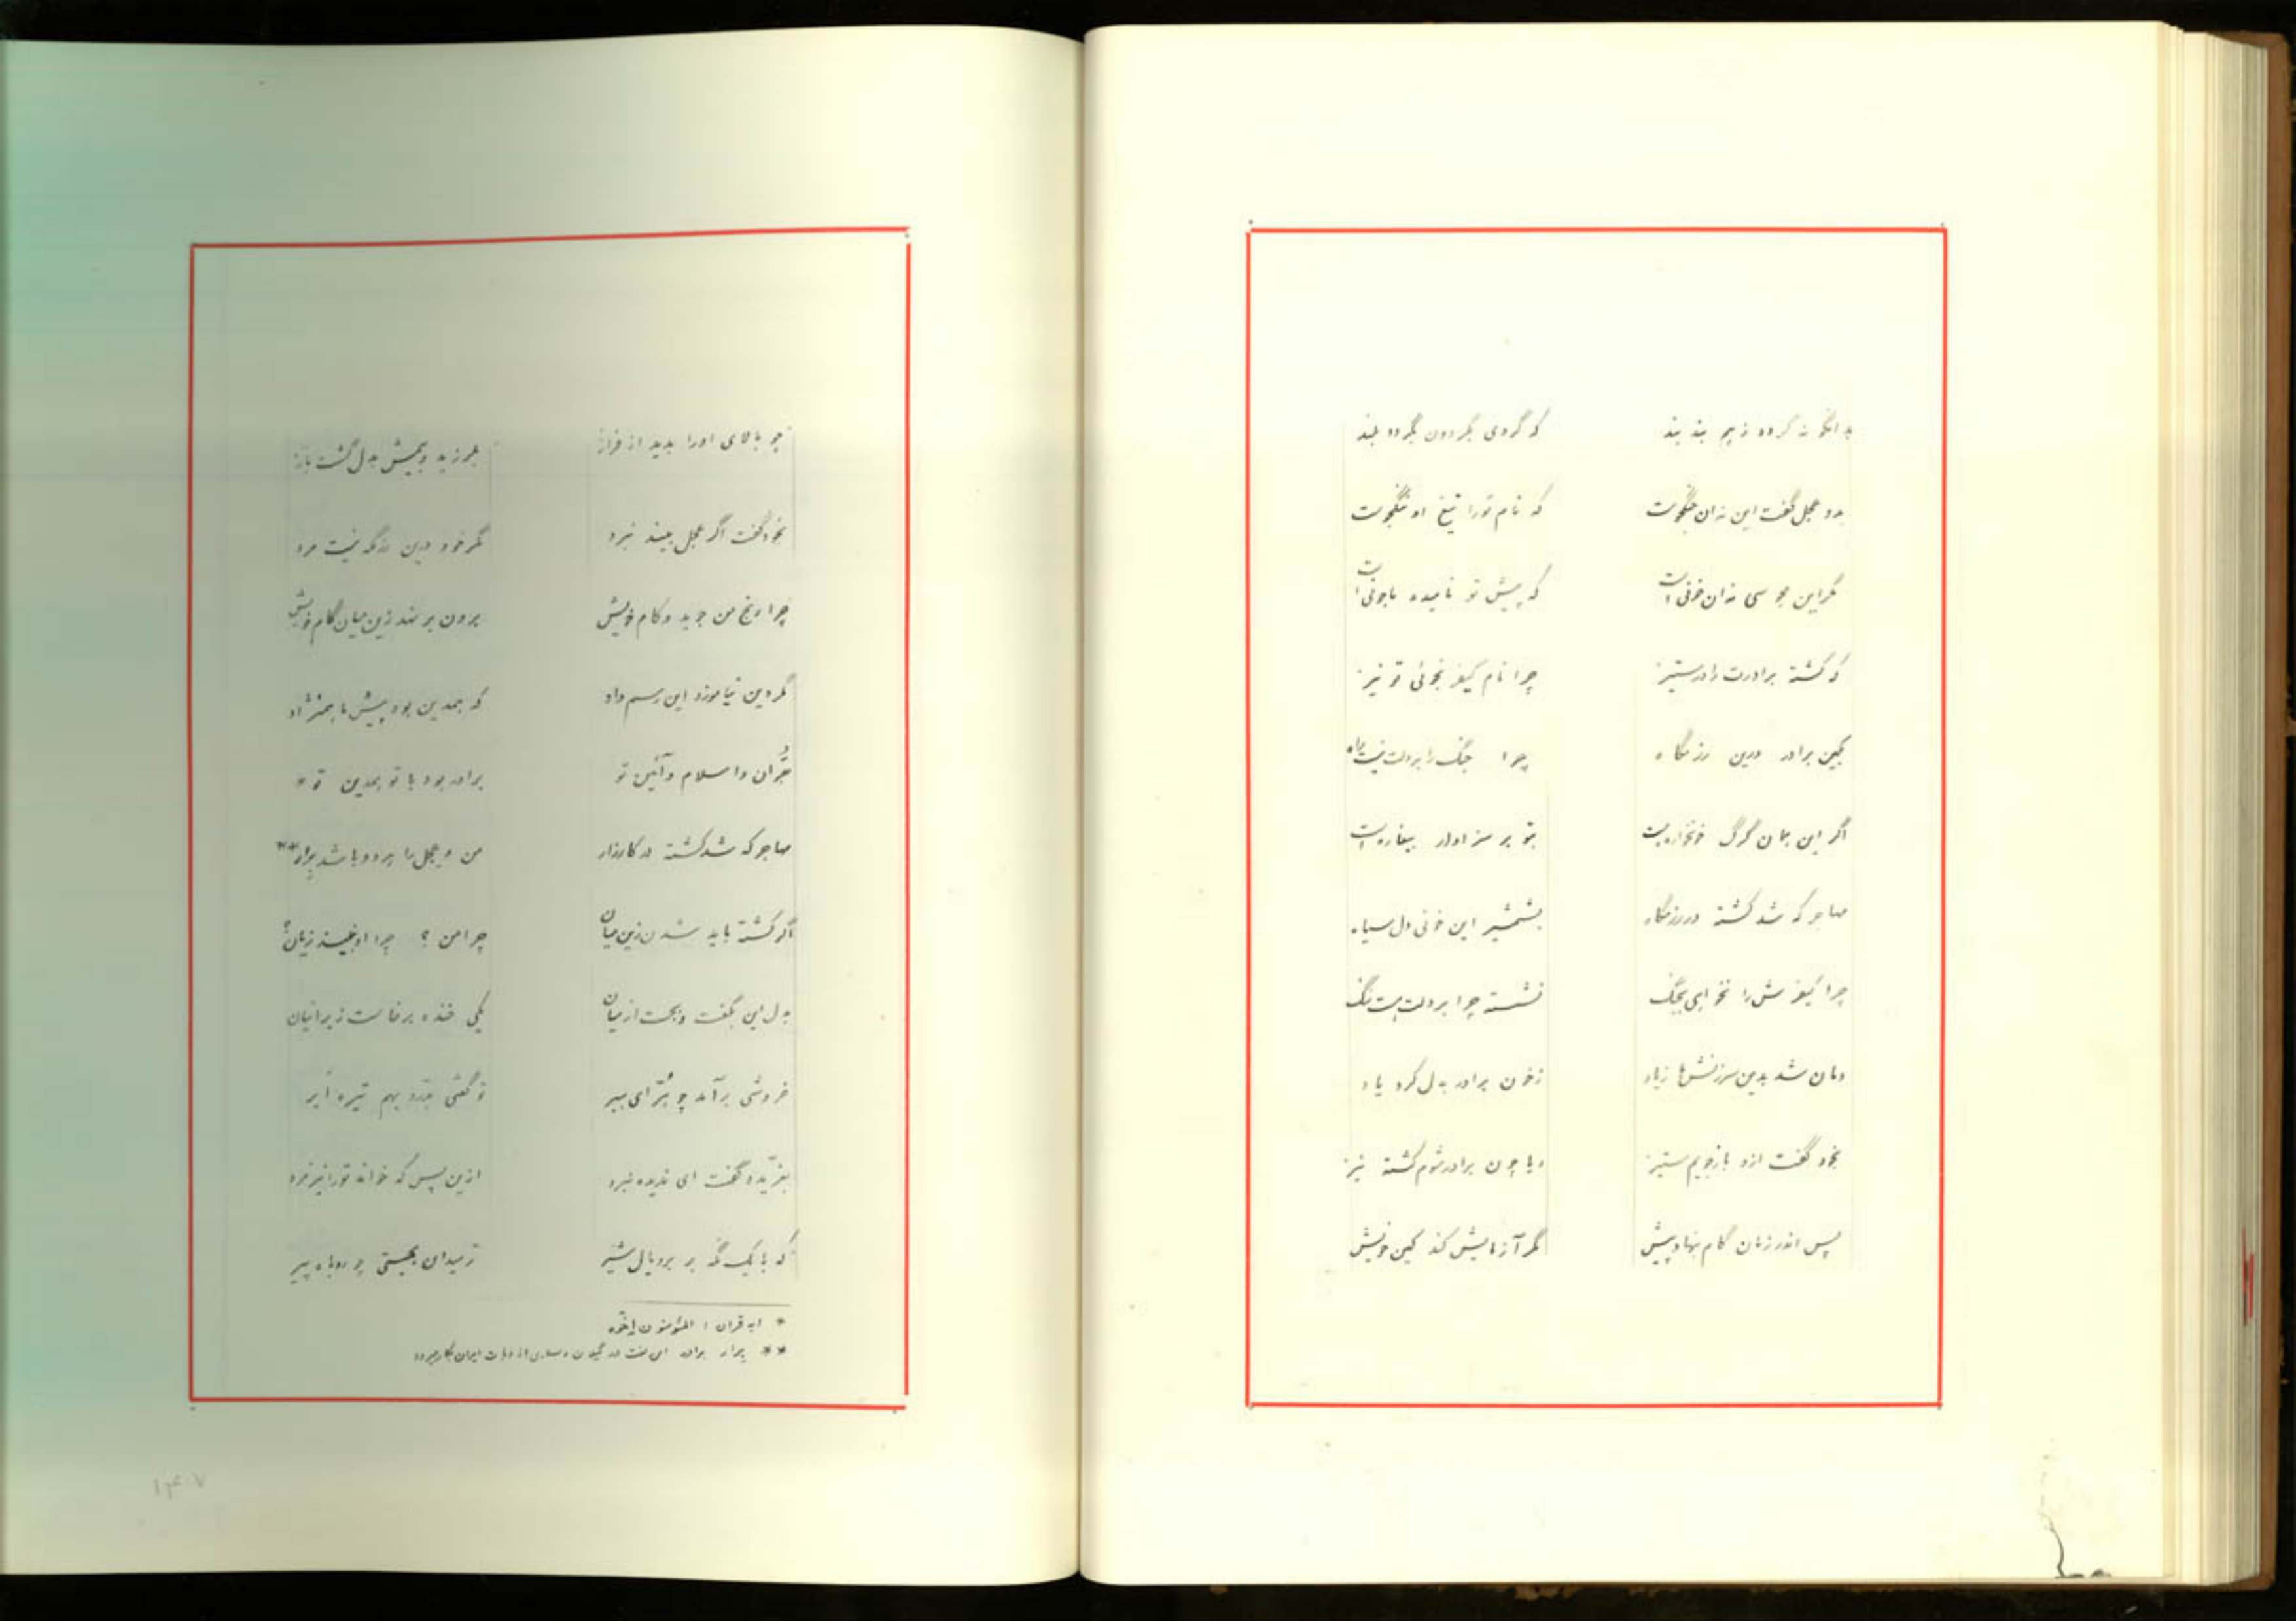 بدانگونه کرده زبیم بند بند که گردی بگردون بگردد بلند
بدو عجل گفت این نه آن جنگجوست که نام تو را تیغ او شنگجوست
مگر این مجوسی نه آن خونی است که پیش تو نامیده باجونی است
که کشته برادرت را در ستیز چرا نام کیفر نجوئی تو نیز
بکین برادر درین رزمگاه چرا جنگ را بردلت نیست راه
اگر این همان گرگ خونخواره است بتو بر سزاوار بیغاره است
مهاجر که شد کشته در رزمگاه بشمشیر این خونی دل سیاه
چرا کیفرش را نخواهی بجنگ نشسته چرا بردلت هست ننگ
دمان شد بدین سرزنش‌ها زیاد ز خون برادر بدل کرد یاد
بخود گفت ازو بازجویم ستیز ویا چون برادر شوم کشته نیز
پس اندر زمان گام بنهاد پیش مگر آزمایش کند کین خویش
چو بالای او را بدید از فراز بلرزید و بیمش بدل گشت باز
بخود گفت اگر عجل بیند نبرد مگر خود درین رزمگه نیست مرد
چرا رنج من جوید و کام خویش برون بر نهد زین میان گام خویش
مگر دین نیاموزد این رسم و داد که همدین بود پیش ما همنژاد
بقرآن و اسلام و آئین تو برادر بود با تو همدین تو *
مهاجر که شد کشته در کارزار من و عجل را هر دو باشد برار **
اگر کشته باید شدن زین میان چرا من ؟ چرا او نبیند زیان؟
بدل این بگفت و بجست از میان یکی خنده برخاست ز ایرانیان
خروشی برآمد چو غرّای ببر تو گفتی بدرد بهم تیره ابر
بغرّید و گفت ای ندیده نبرد ازین پس که خواند تو را نیز مرد
که با یک نگه بر بر و یال شیر ز میدان بجستی چو روباه پیر
* آیه قرآن : المؤمنون اخوه
** برار برادر این لغت در گیلان و بسیاری از دهات ایران بکار میرود
۱۴۰۷